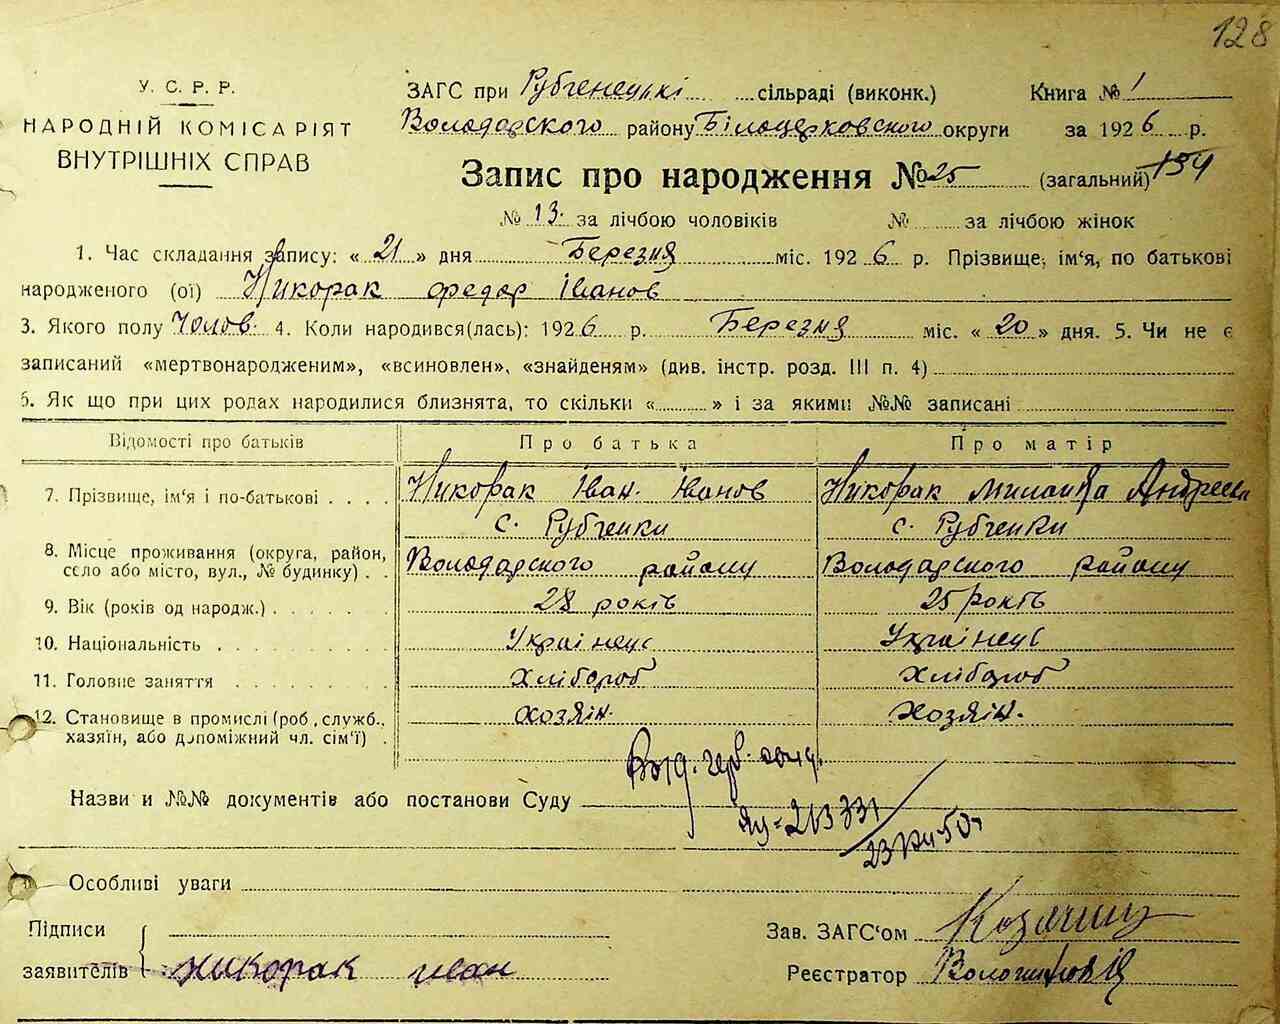 128
У. С. Р. Р.
НАРОДНІЙ КОМІСАРІЯТ
ВНУТРІШНІХ СПРАВ
ЗАГС при Рубченецькі сільраді (виконк.) Книга № 1
Володарского району Білоцерковского округи за 1926 р.
Запис про народження № 25 (загальний) 154
№ 13. за лічбою чоловіків № за лічбою жінок
1. Час складання запису: « 21 » дня Березня міс. 1926 р. Прізвище, ім'я, по батькові
народженого (ої) Никорак Федор Іванов
3. Якого полу Чолов. 4. Коли народився(лась): 1926 р. Березня міс. « 20 » дня. 5. Чи не є
записаний «мертвонародженим», «всиновлен», «знайденям» (див. інстр. розд. III п. 4)
6. Як що при цих родах народилися близнята, то скільки « » і за якими №№ записані
Відомості про батьків Про батька Про матір
7. Прізвище, ім'я і по-батькові Никорак Іван Іванов Никорак Андреев
с. Рубченки с. Рубченки
8. Місце проживання (округа, район,
село або місто, вул., № будинку) Володарского району Володарского району
9. Вік (років од народж.) 28 років 25 років
10. Національність Українец Українец
11. Головне заняття Хлібороб Хлібороб
12. Становище в промислі (роб., служб.,
хазяїн, або допоміжний чл. сім'ї) Хозяін. Хозяін.
Назви и №№ документів або постанови Суду
Особливі уваги
Підписи
заявителів Никорак Иван
Зав. ЗАГС'ом
Реєстратор